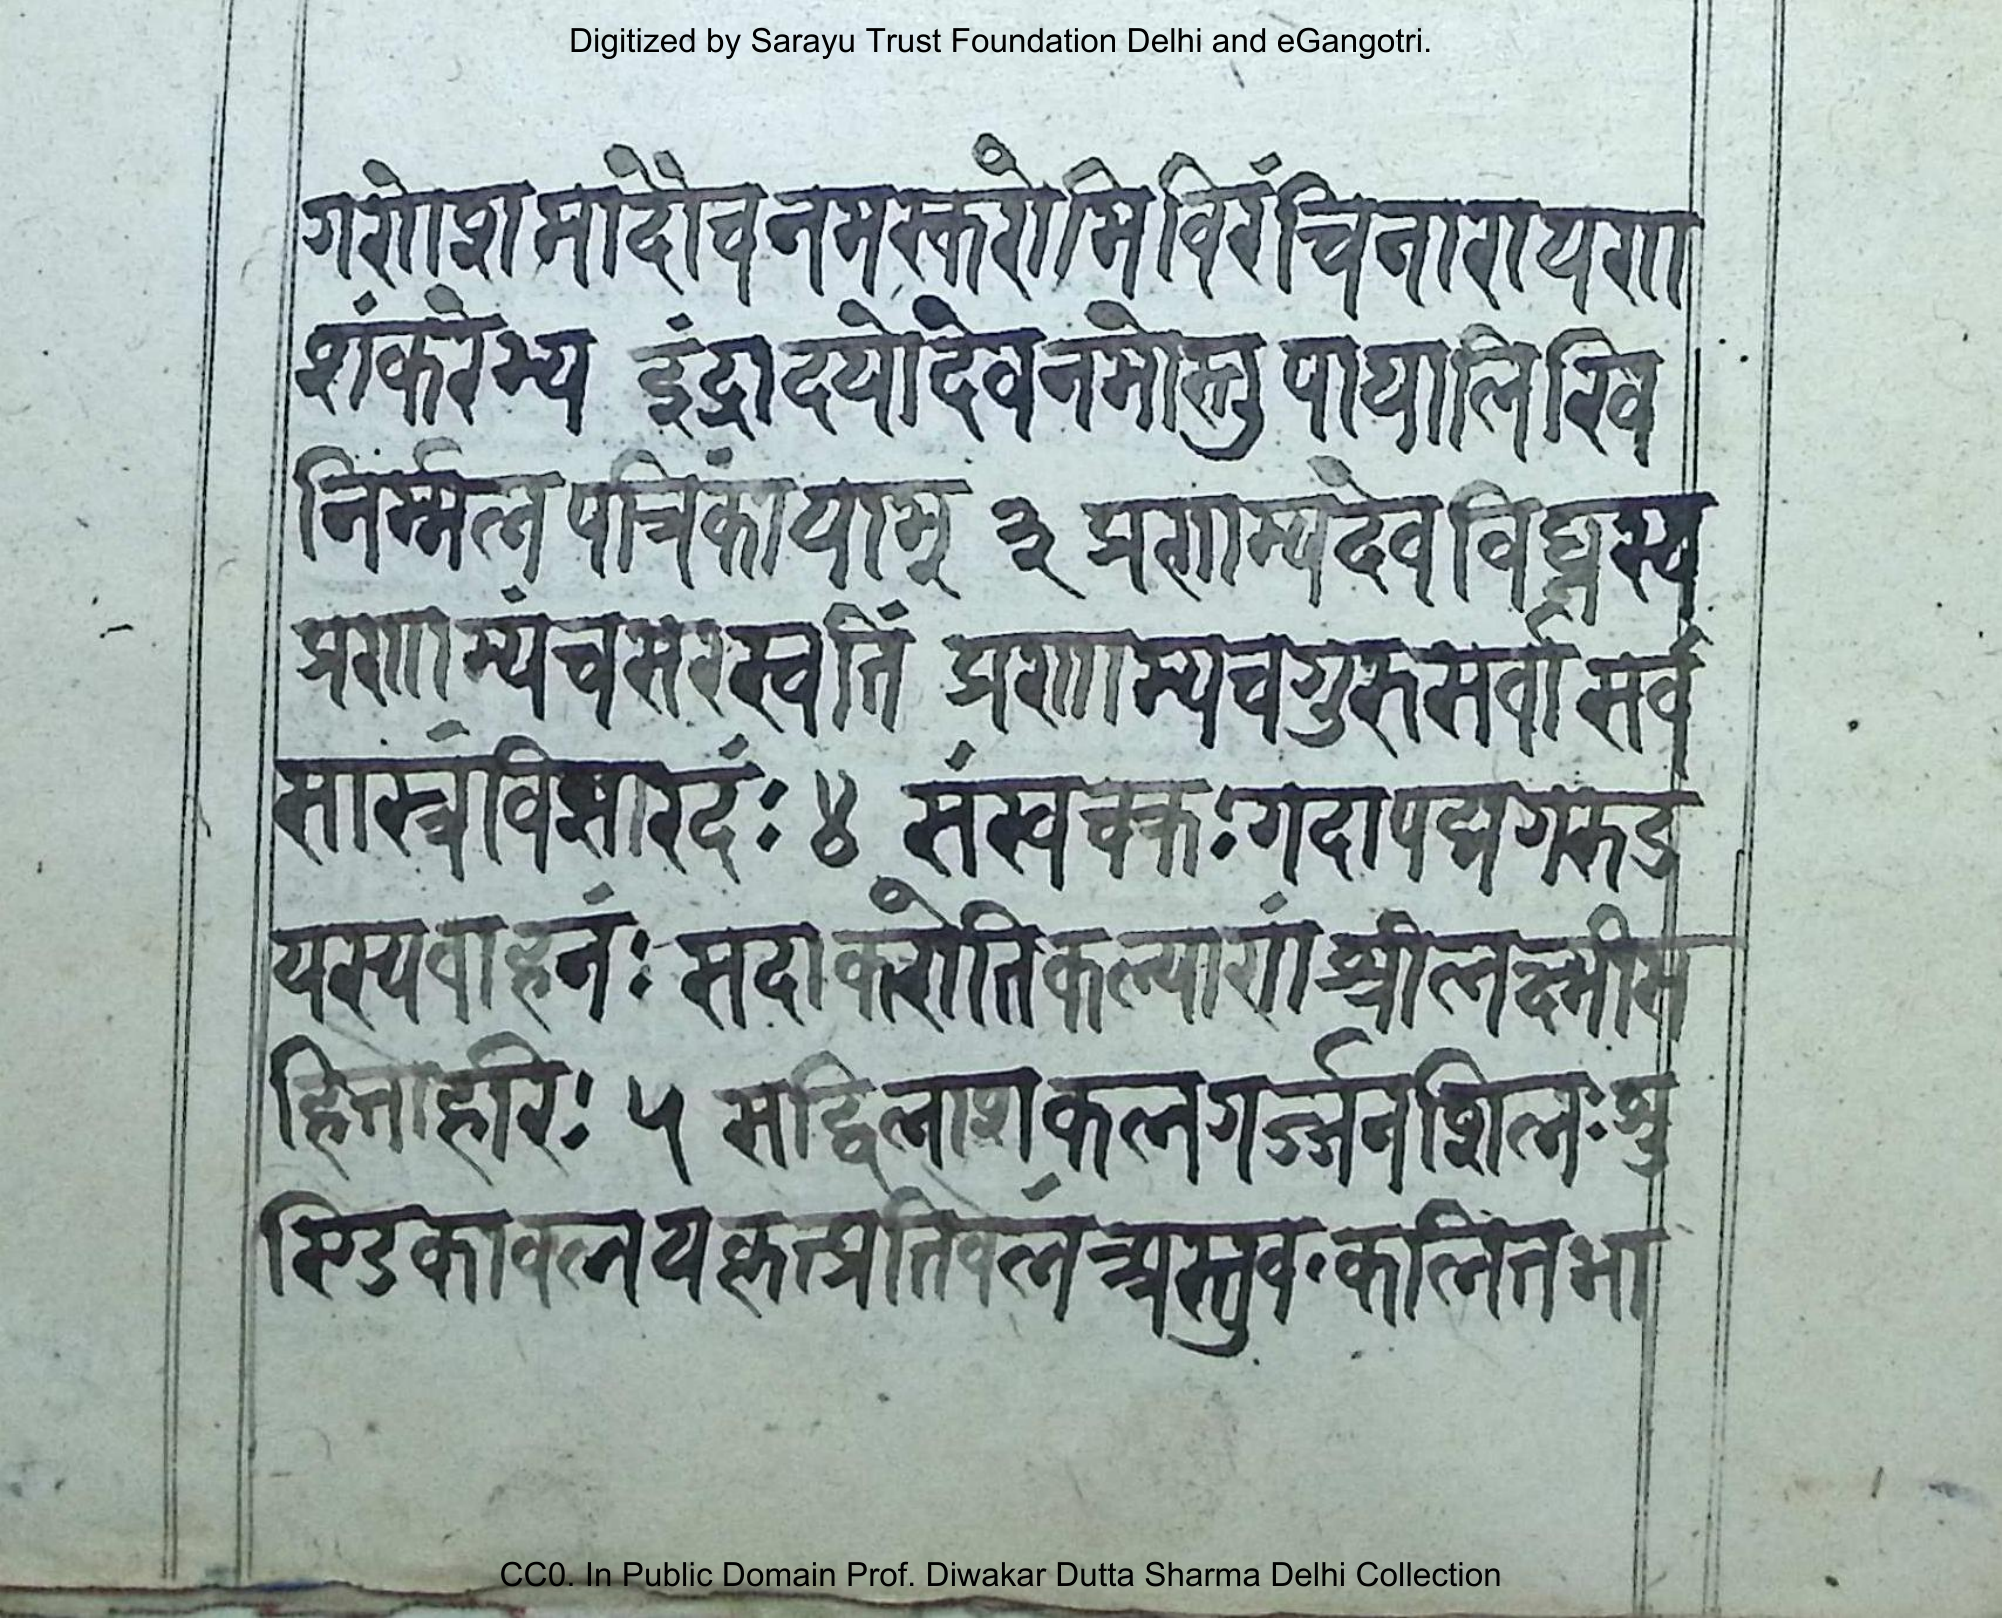 Digitized by Sarayu Trust Foundation Delhi and eGangotri.
गणेशमादौचनमस्करोमिविरंचिनारायण
शंकरेभ्य इंद्रादयोदेवनमोस्तु पायालिखि
निर्म्मलपत्रिकांयाम् ३ प्रणाम्यदेवविघ्नस्य
प्रणाम्यंचसरस्वतिं प्रणाम्यचगुरुसर्वा सर्व
सास्त्रंविसारदंः ४ संखचक्रःगदापद्मगरुड
यस्यवाहनंः सदाकरोतिकल्याणं श्रीलक्ष्मीस
हिताहरिः ५ सद्विलाशकलगर्ज्जनशिलः शु
ण्डिकावलयकृत्प्रतिवलं अस्तुवःकलितभा
CC0. In Public Domain Prof. Diwakar Dutta Sharma Delhi Collection